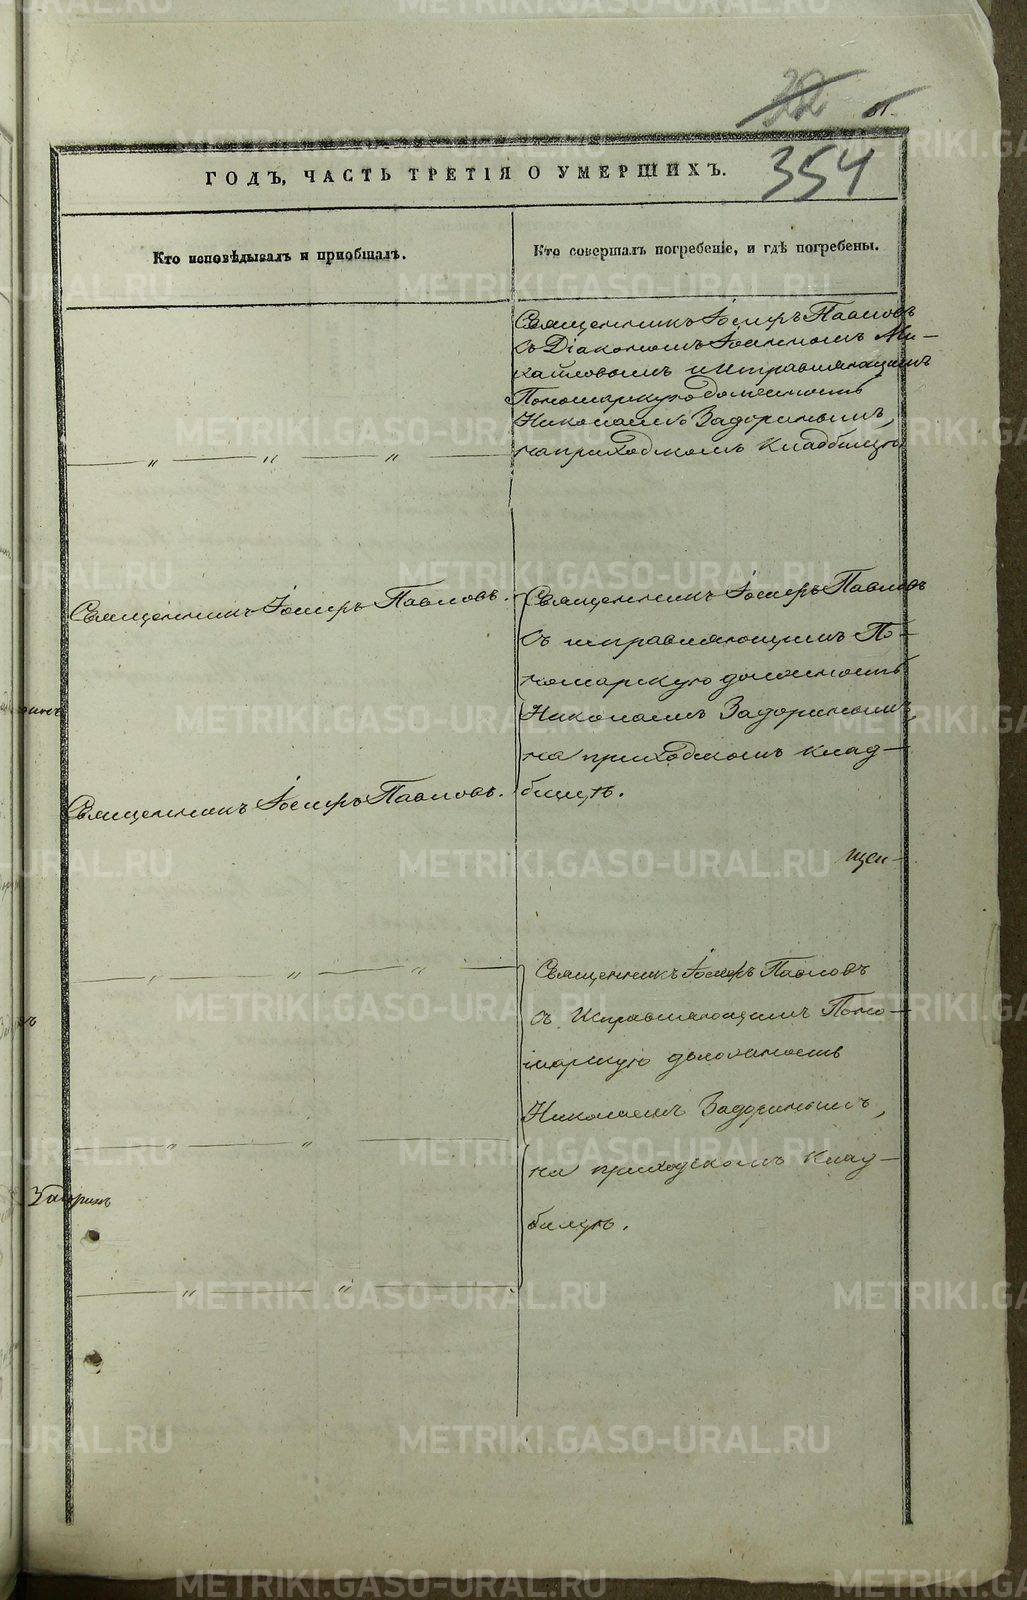 22
81.
354
ГОДЪ, ЧАСТЬ ТРЕТІЯ О УМЕРШИХЪ.
Кто исповѣдывалъ и пріобщалъ.
Кто совершалъ погребеніе, и гдѣ погребены.
Священникъ Іосифъ Павловъ
съ Діакономъ Ми-
хайловымъ и исправляющимъ
Пономарскую должность
Николаемъ Задоринымъ,
на приходскомъ кладбищѣ
" " "
Священникъ Іосифъ Павловъ.
Священникъ Іосифъ Павловъ
съ исправляющимъ По-
номарскую должность
Николаемъ Задоринымъ,
на приходскомъ клад-
бищѣ.
Священникъ Іосифъ Павловъ.
щен-
" " "
Священникъ Іосифъ Павловъ
съ Исправляющимъ Поно-
марскую должность
Николаемъ Задоринымъ,
на приходскомъ клад-
бищѣ.
" "
" "
METRIKI.GASO-URAL.RU